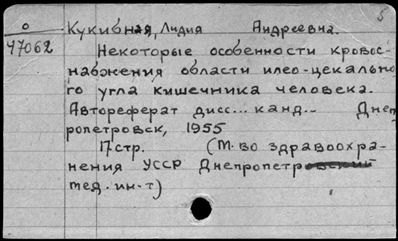 5
о Кукибная, Лидия Андреевна.
47062
Некоторые особенности кровос-
набжения области илео-цекально
го угла кишечника человека.
Автореферат дисс... канд... Днеп
ропетровск, 1955
17 стр. (М-во здравоохра-
нения УССР Днепропетровский
мед. ин-т)